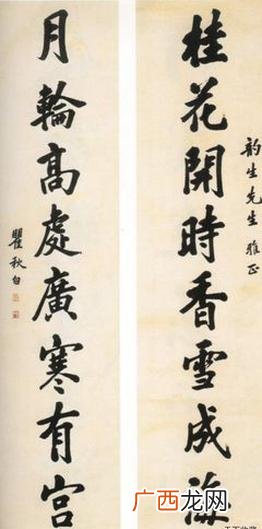 韵生先生雅正
桂花開時香雪成海
月輪高處廣寒有宮
瞿秋白
广西龙网